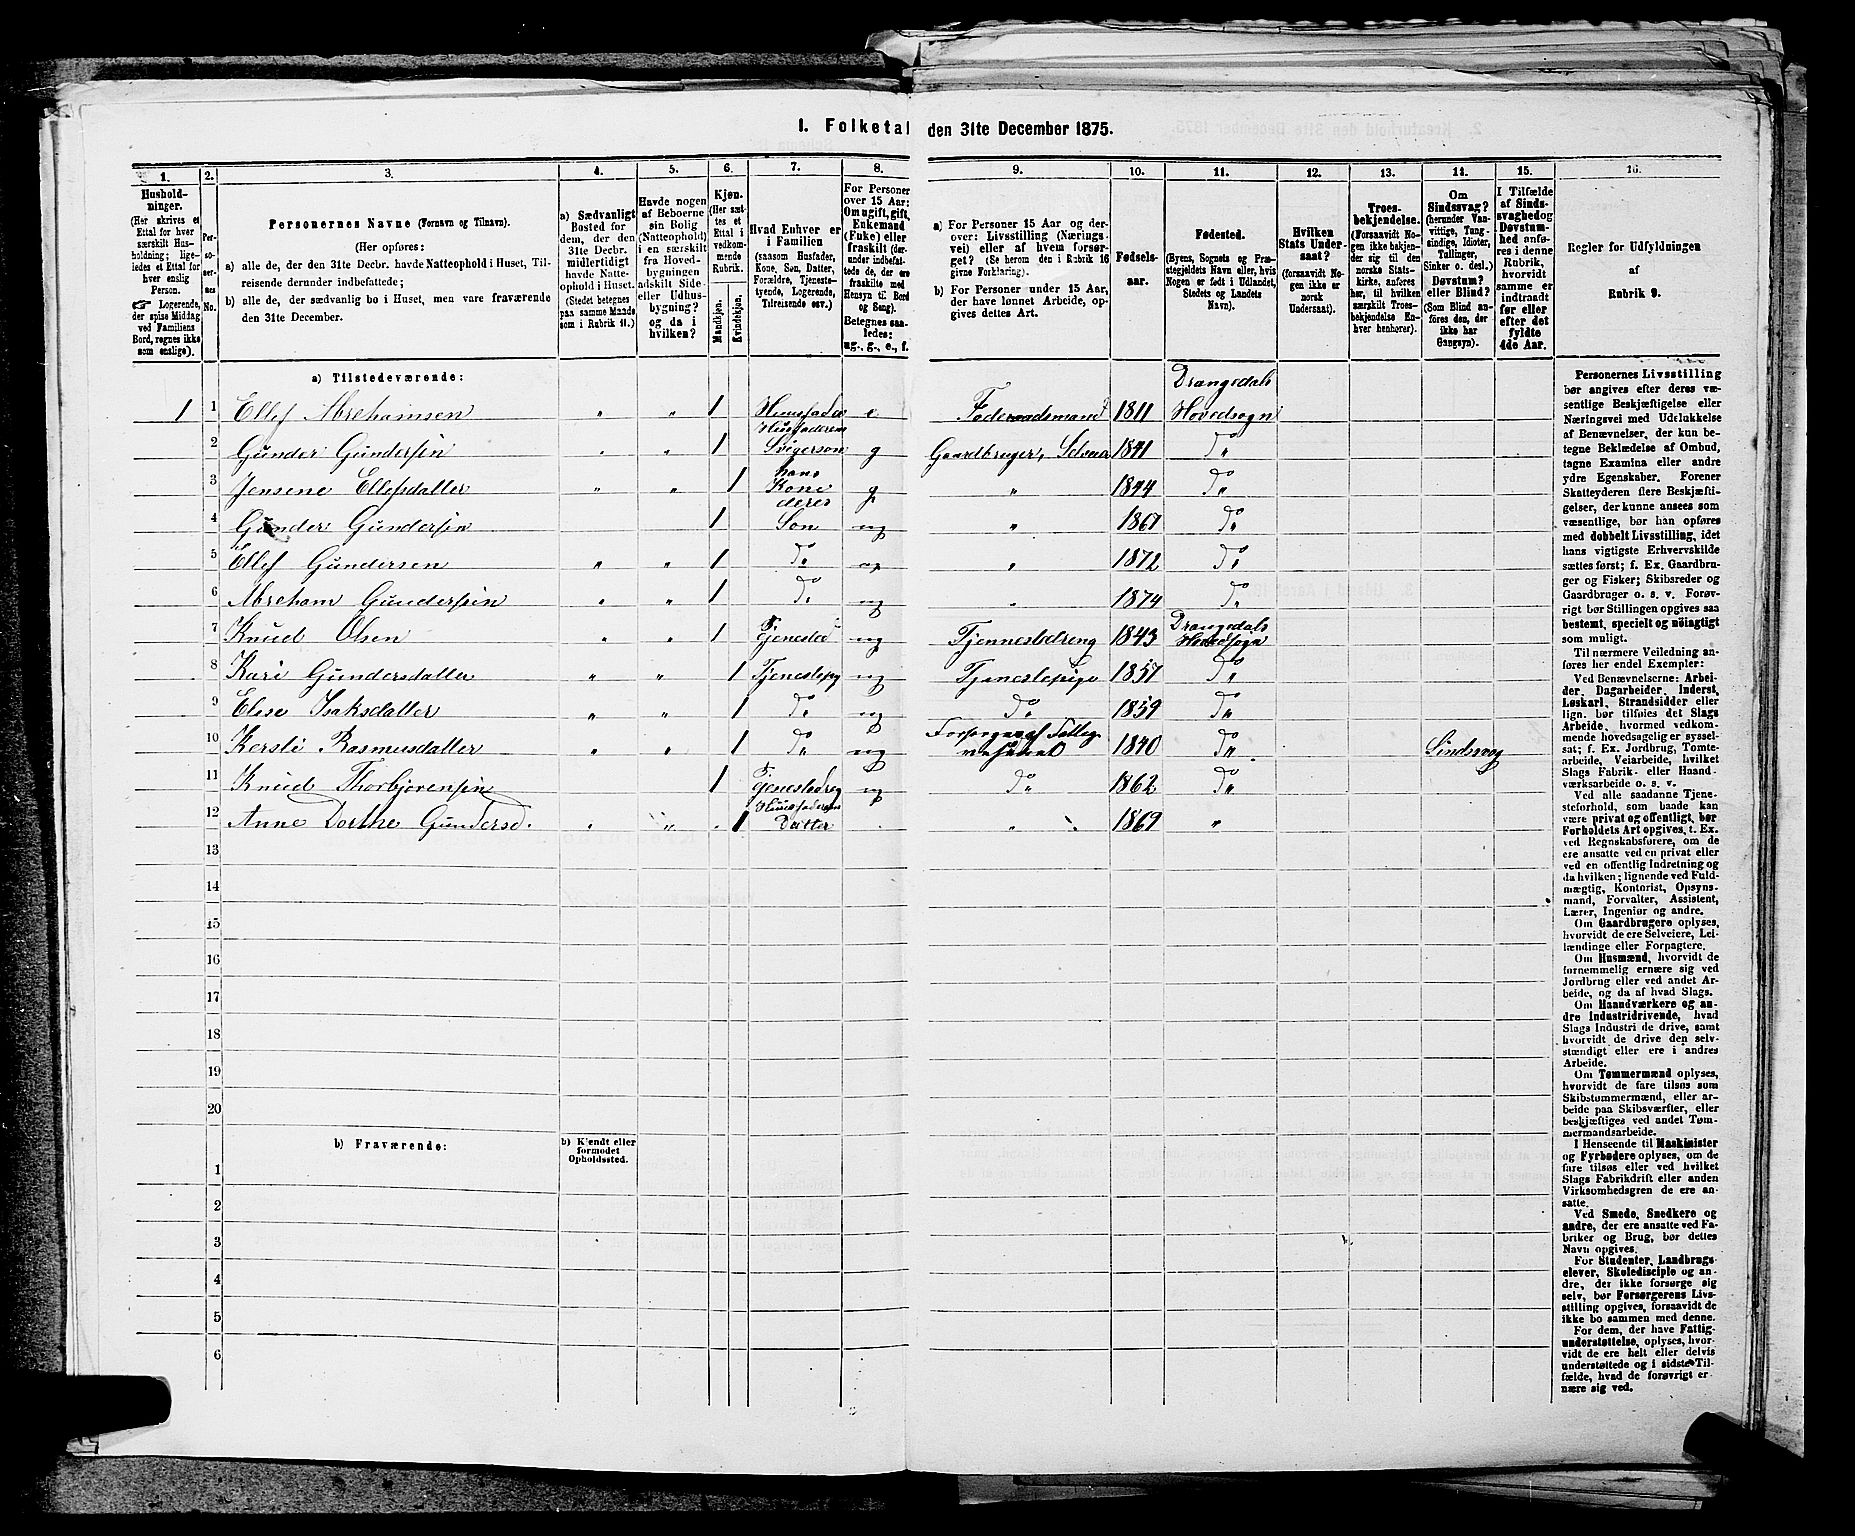 I. Folketal den 31te December 1875.
1. 2. 3. 4. 5. 6. 7. 8. 9. 10. 11. 12. 13. 14. 15. 16.
Hushold-
ninger.
(Her skrives et
Ettal for hver
særskilt Hus-
holdning; lige-
ledes et Ettal for
hver enslig
Person.
☞ Logerende,
der spise Middag
ved Familiens
Bord, regnes ikke
som enslige).
Per-
so-
ner-
nes
No.
Personernes Navne (Fornavn og Tilnavn).
(Her opføres:
a) alle de, der den 31te Decbr. havde Natteophold i Huset, Til-
reisende derunder indbefattede;
b) alle de, der sædvanlig bo i Huset, men vare fraværende
den 31te December.
a) Sædvanligt
Bosted for
dem, der den
31te Decbr.
midlertidigt
havde Natte-
ophold i Huset.
(Stedet betegnes
paa samme Maade
som i Rubrik 11.)
Havde nogen
af Beboerne
sin Bolig
(Natteophold)
i en særskilt
fra Hoved-
bygningen
adskilt Side-
eller Udhus-
bygning?
og da i
hvilken?
Kjøn.
(Her sæt-
tes et
Ettal i
vedkom-
mende
Rubrik.
Mandkjøn.
Kvindekjøn.
Hvad Enhver er
i Familien
(saasom Husfader,
Kone, Søn, Datter,
Forældre, Tjeneste-
tyende, Logerende,
Tilreisende osv.)
For Personer
over 15 Aar:
Om ugift, gift,
Enkemand
(Enke) eller
fraskilt (der-
under indbefat-
tede de, der ere
fraskilte med
Hensyn til Bord
og Seng).
Betegnes saa-
ledes:
ug., g., e., f.
a) For Personer 15 Aar og der-
over: Livsstilling (Nærings-
vei) eller af hvem forsør-
get? (Se herom den i Rubrik 16
givne Forklaring).
b) For Personer under 15 Aar,
der have lønnet Arbeide, op-
gives dettes Art.
Fødsels-
aar.
Fødested.
(Byens, Sognets og Præ-
stegjeldets Navn eller, hvis
Nogen er født i Udlandet,
Stedets og Landets
Navn).
Hvilken
Stats Under-
saat?
(forsaavidt No-
gen ikke er
norsk
Undersaat).
Troes-
bekjendelse.
(Forsaavidt No-
gen ikke bekjen-
der sig til den
norske Stats-
kirke, anføres
her, til hvilken
særskilt Troes-
bekjendelse En-
hver henhører).
Om
Sindssvag?
(herunder Van-
vittige, Tung-
sindige, Idioter,
Tullinger,
Sinker o. desl.)
Døvstum?
eller Blind?
(Som Blind an-
føres den, der
ikke har
Gangsyn).
I Tilfælde
af Sinds-
svaghed og
Døvstum-
hed anfø-
res i denne
Rubrik,
hvorvidt
samme er
indtraadt
før eller
efter det
fyldte
4de Aar.
Regler for Udfyldningen
af
Rubrik 9.
a) Tilstedeværende: Drangedals
1 1 Ellef Abrehamsen " " 1 Huusfader e Føderaadsmand 1811 Hovedsogn
2 Gunder Gundersen " " 1 Husfaderens Svigerson g Gaardbruger, Selveier 1841 Do
3 Jensene Ellefsdatter " " 1 hans Kone g " 1844 Do
4 Gunder Gundersen 1 deres Søn ug " 1867 Do
5 Ellef Gundersen " " 1 Do ug " 1872 Do
6 Abreham Gundersen " " 1 Do ug " 1874 Do
7 Knud Olsen " " 1 ug Tjennestedreng 1843 Drangedals Hovedsogn
8 Kari Gundersdatter " " 1 Tjenestepg ug Tjenestepige 1857 Do
9 Elise Isaksdatter " " 1 Do ug Do 1859 Do
10 Kersti Rasmusdatter " " 1 Do ug Forsørges af Fattig 1840 Do Sindssvag
11 Knud Thorbjørensen 1 Tjenestedreg ug Do 1862 Do
12 Anne Dorthe Gundersd. " " 1 Huusfaderens Datter " 1869 "
13
14
15
16
17
18
19
20
b) Fraværende:
b) Kjendt eller
formodet
Opholdssted.
1
2
3
4
5
6
Personernes Livsstilling
bør angives efter deres væ-
sentlige Beskjæftigelse eller
Næringsvei med Udelukkelse
af Benævnelser, der kun be-
tegne Beklædelse af Ombud,
tagne Examina eller andre
ydre Egenskaber. Forener
Skatteyderen flere Beskjæfti-
gelser, der kunne ansees som
væsentlige, bør han opføres
med dobbelt Livsstilling, idet
hans vigtigste Erhvervskilde
sættes først; f. Ex. Gaardbru-
ger og Fisker; Skibsreder og
Gaardbruger o. s. v. Forøv-
rigt bør Stillingen opgives saa
bestemt, specielt og nøiagtigt
som muligt.
Til nærmere Veiledning an-
føres her endel Exempler:
Ved Benævnelserne: Arbei-
der, Dagarbeider, Inderst,
Løskarl, Strandsidder eller
lign. bør tilføies det Slags
Arbeide, hvormed vedkom-
mende hovedsagelig er syssel-
sat; f. Ex. Jordbrug, Tomte-
arbeide, Veiarbeide, hvilket
Slags Fabrik- eller Haand-
værksarbeide o. s. v.
Ved alle saadanne Tjene-
steforhold, som baade kan
være privat og offentligt, bør
Forholdets Art opgives, t. Ex.
ved Regnskabsførere, om de
ere ansatte ved en privat eller
ved en offentlig Indretning og
da hvilken; lignende ved Fuld-
mægtig, Kontorist, Opsyns-
mand, Forvalter, Assistent,
Lærer, Ingeniør og andre.
Om Gaardbrugere oplyses,
hvorvidt de ere Selveiere, Lei-
lændinge eller Forpagtere.
Om Husmænd, hvorvidt de
fornemmelig ernære sig ved
Jordbrug eller ved andet Ar-
beide, og da af hvad Slags.
Om Haandværkere og an-
dre Industridrivende, hvad
Slags Industri de drive, samt
hvorvidt de drive den selv-
stændigt eller ere i andres
Arbeide.
Om Tømmermænd oplyses,
hvorvidt de fare tilsøs som
Skibstømmermænd, eller ar-
beide paa Skibsværfter, eller
beskjæftiges ved andet Tøm-
mermandsarbeide.
I Henseende til Maskinister
og Fyrbødere oplyses, om de
fare tilsøs eller ved hvilket
Slags Fabrikdrift eller anden
Virksomhedsgren de ere an-
satte.
Ved Smede, Snedkere og
andre, der ere ansatte ved Fa-
briker og Brug, bør dettes
Navn opgives.
For Studenter, Landbrugs-
elever, Skoledisciple og an-
dre, der ikke forsørge sig
selv, bør Forsørgerens Livs-
stilling opgives, forsaavidt de
ikke bo sammen med denne.
For dem, der have Fattig-
understøttelse, oplyses, hvor-
vidt de ere helt eller delvis
understøttede og i sidste Til-
fælde, hvad de forøvrigt er-
nære sig ved.